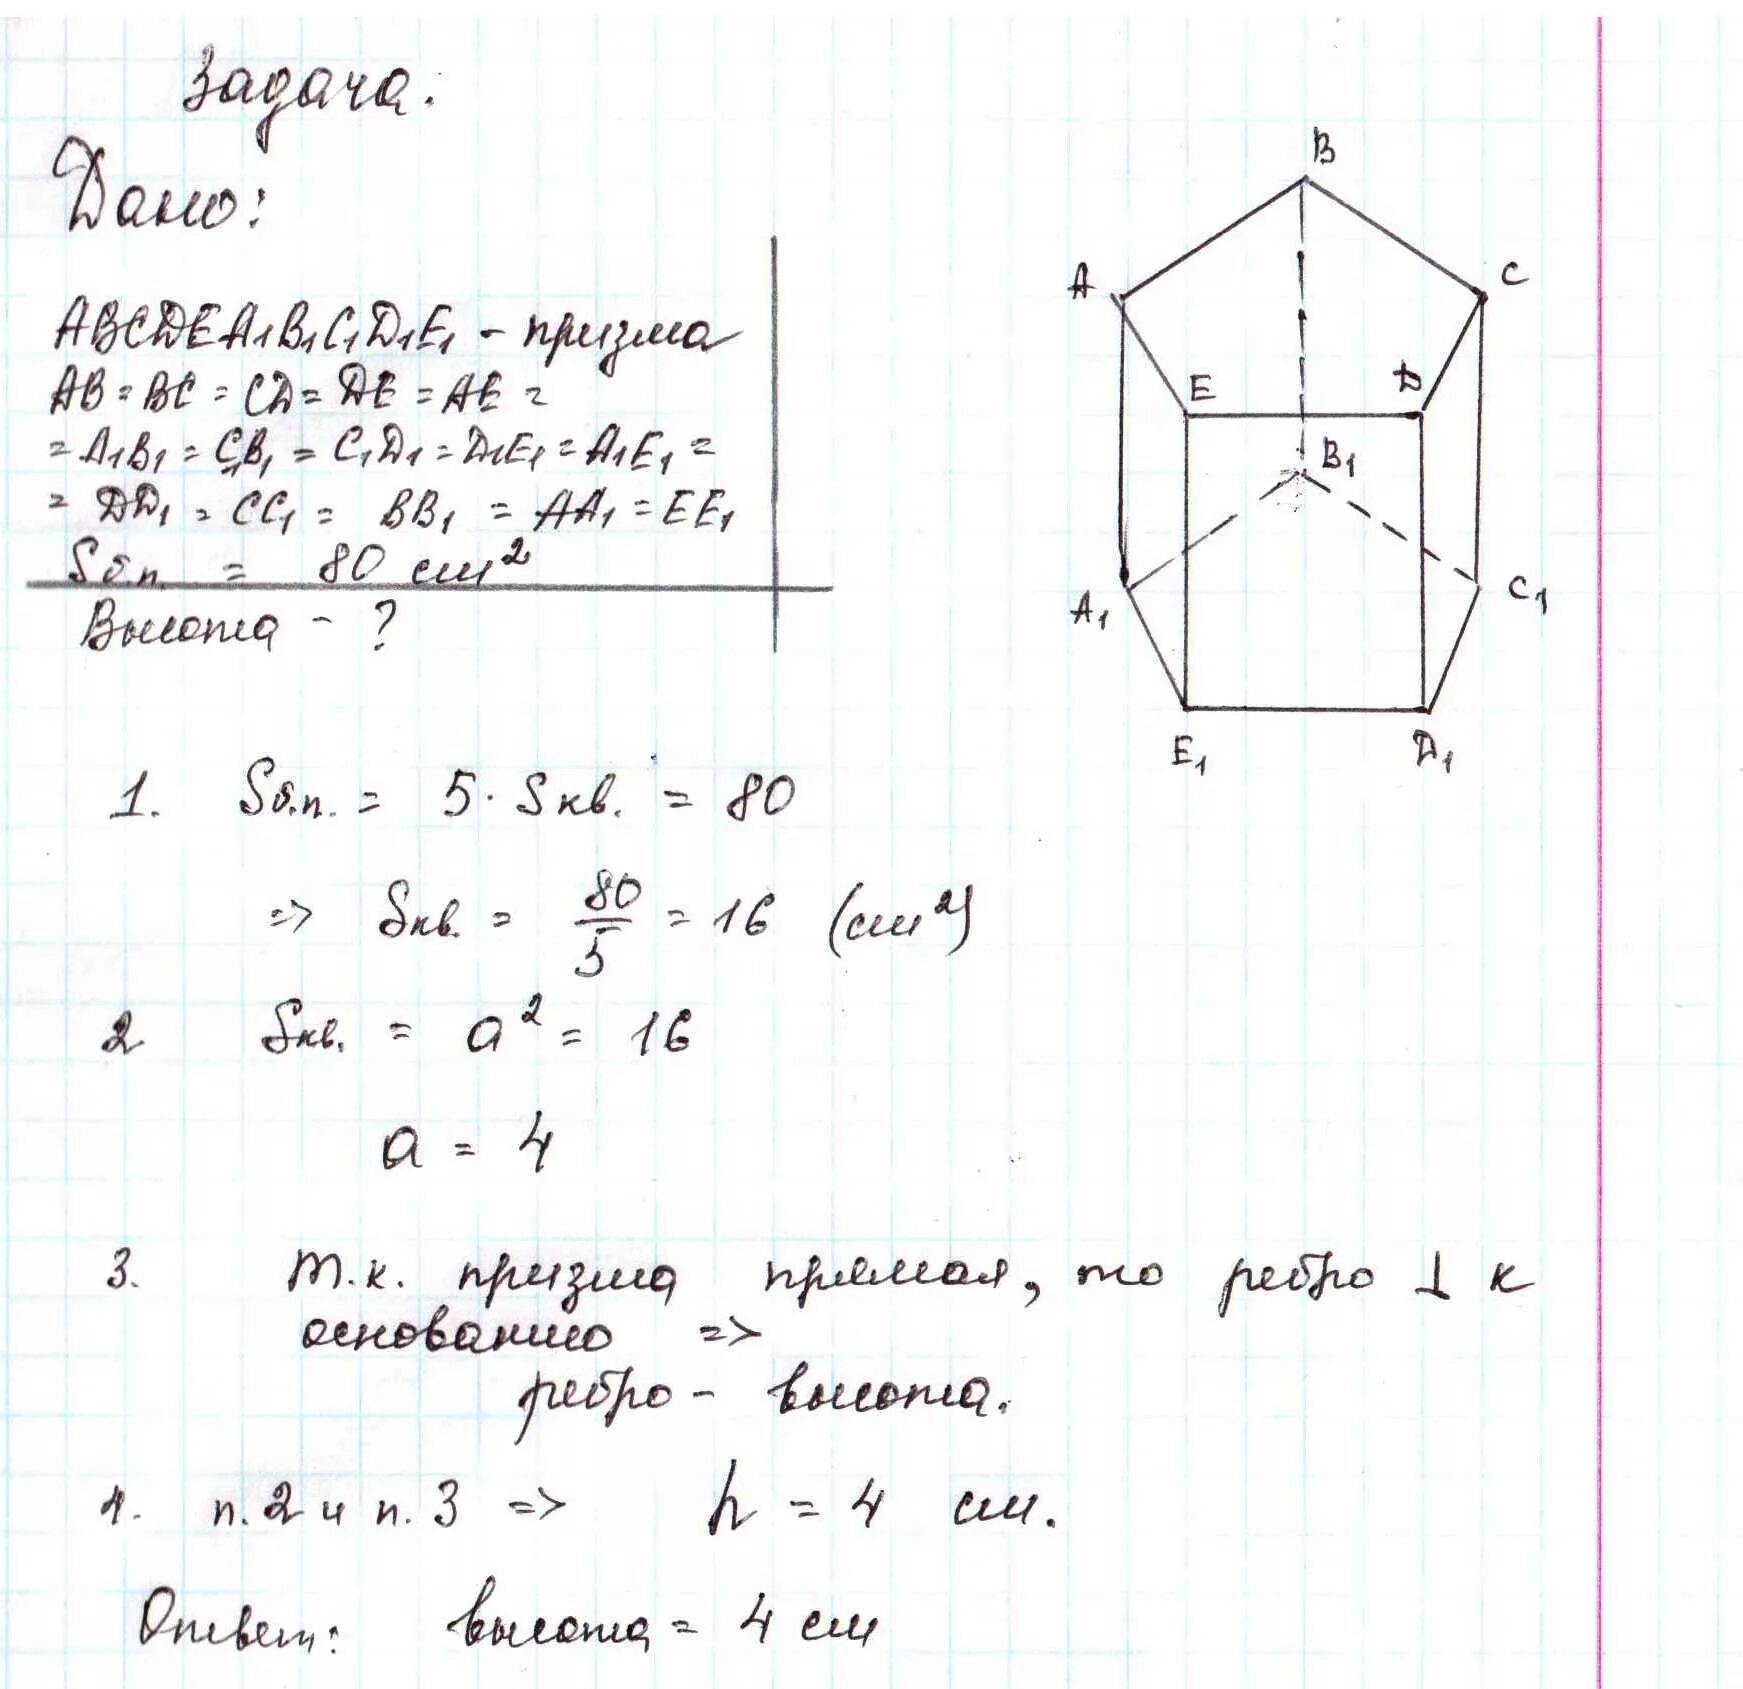 Задача.
Дано:
ABCDEA₁B₁C₁D₁E₁ - призма
AB = BC = CD = DE = AE =
= A₁B₁ = C₁B₁ = C₁D₁ = D₁E₁ = A₁E₁ =
= DD₁ = CC₁ = BB₁ = AA₁ = EE₁
Sб.п. = 80 см²
Высота - ?
B
A
C
E
D
B₁
A₁
C₁
E₁
D₁
1. Sб.п. = 5 · Sкв. = 80
=> Sкв. = 80/5 = 16 (см²)
2 Sкв. = a² = 16
a = 4
3. Т.к. призма прямая, то ребро ⊥ к
основанию =>
ребро - высота.
4. п.2 и п.3 => h = 4 см.
Ответ: высота = 4 см